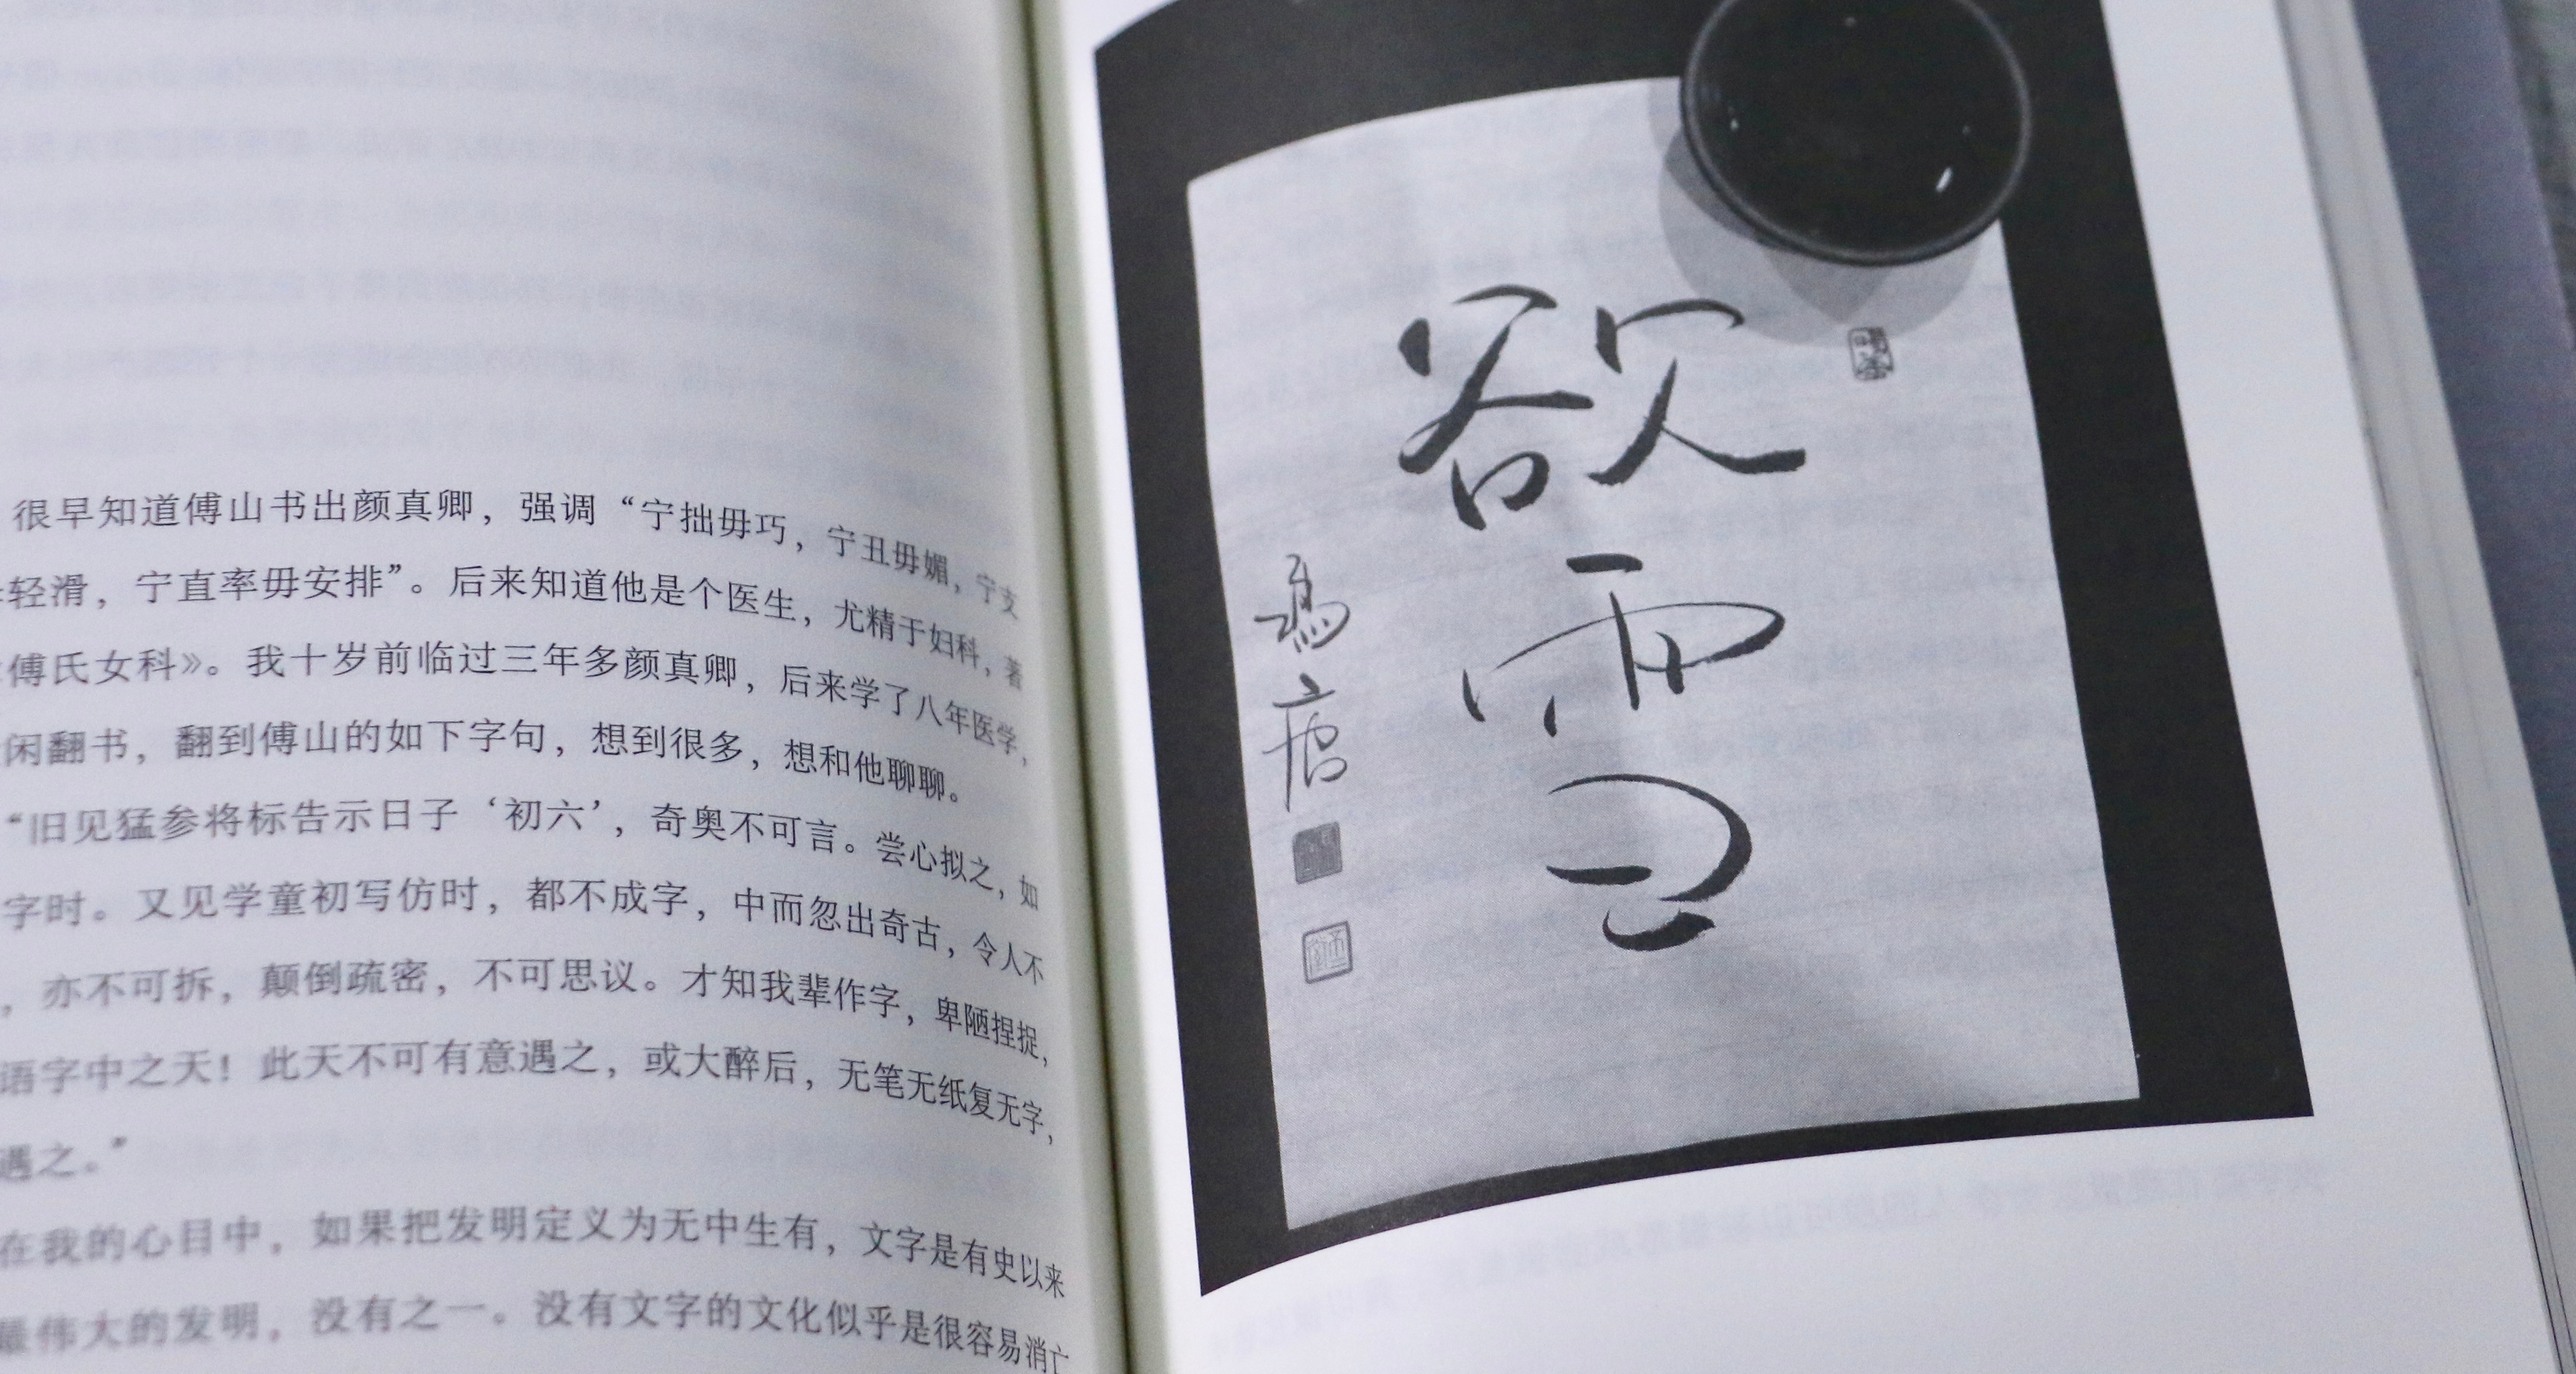 很早知道傅山书出颜真卿，强调“宁拙毋巧，宁丑毋媚，宁支
轻滑，宁直率毋安排”。后来知道他是个医生，尤精于妇科，著
傅氏女科》。我十岁前临过三年多颜真卿，后来学了八年医学，
闲翻书，翻到傅山的如下字句，想到很多，想和他聊聊。
“旧见猛参将标告示日子‘初六’，奇奥不可言。尝心拟之，如
字时。又见学童初写仿时，都不成字，中而忽出奇古，令人不
，亦不可拆，颠倒疏密，不可思议。才知我辈作字，卑陋捏捉，
语字中之天！此天不可有意遇之，或大醉后，无笔无纸复无字，
遇之。”
在我的心目中，如果把发明定义为无中生有，文字是有史以来
最伟大的发明，没有之一。没有文字的文化似乎是很容易消亡
欲雪
冯唐